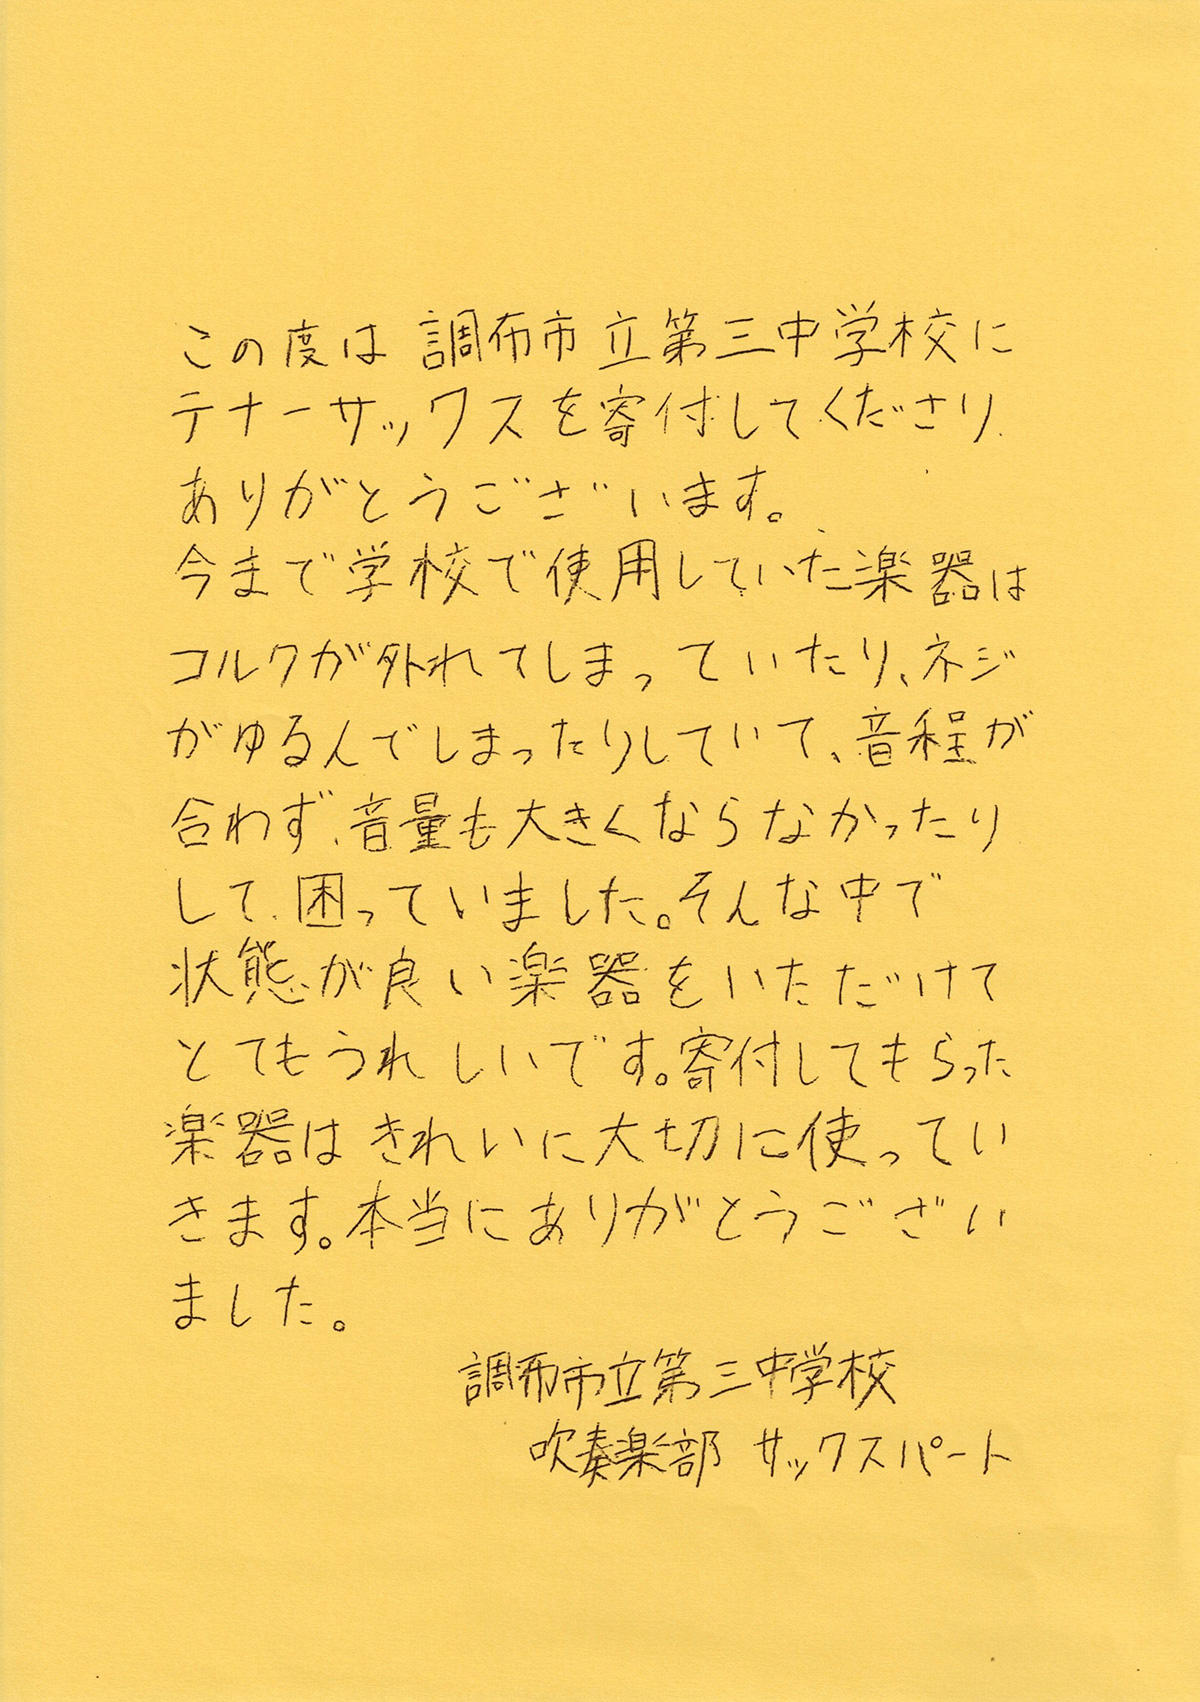 この度は調布市立第三中学校に
テナーサックスを寄付してくださり
ありがとうございます。
今まで学校で使用していた楽器は
コルクが外れてしまっていたり、ネジ
がゆるんでしまったりしていて、音程が
合わず、音量も大きくならなかったり
して、困っていました。そんな中で
状態が良い楽器をいただけて
とてもうれしいです。寄付してもらった
楽器はきれいに大切に使ってい
きます。本当にありがとうござい
ました。
調布市立第三中学校
吹奏楽部 サックスパート